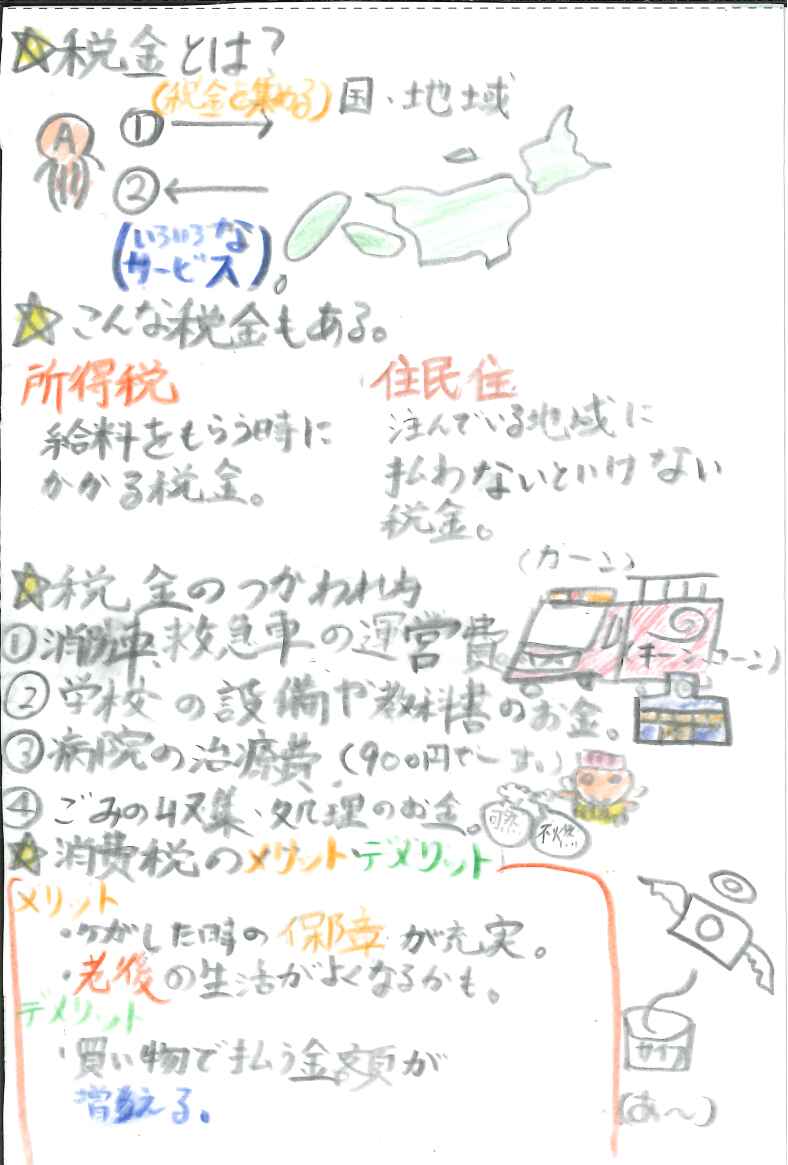 税金とは?
(税金を集める) 国・地域
A ①
②
(いろいろな
サービス)。
こんな税金もある。
所得税
給料をもらう時に
かかる税金。
住民住
注んでいる地域に
払わないといけない
税金。
税金のつかわれ方
(カーン)
①消防車、救急車の運営費。
(キーンコーン)
②学校の設備や教科書のお金。
③病院の治療費(900円でーす。)
④ごみの収集、処理のお金。
可燃 不燃
消費税のメリットデメリット
メリット
・ケガした時の保障が充実。
・老後の生活がよくなるかも。
デメリット
・買い物で払う金額が
増える。
サイフ
(あ〜)